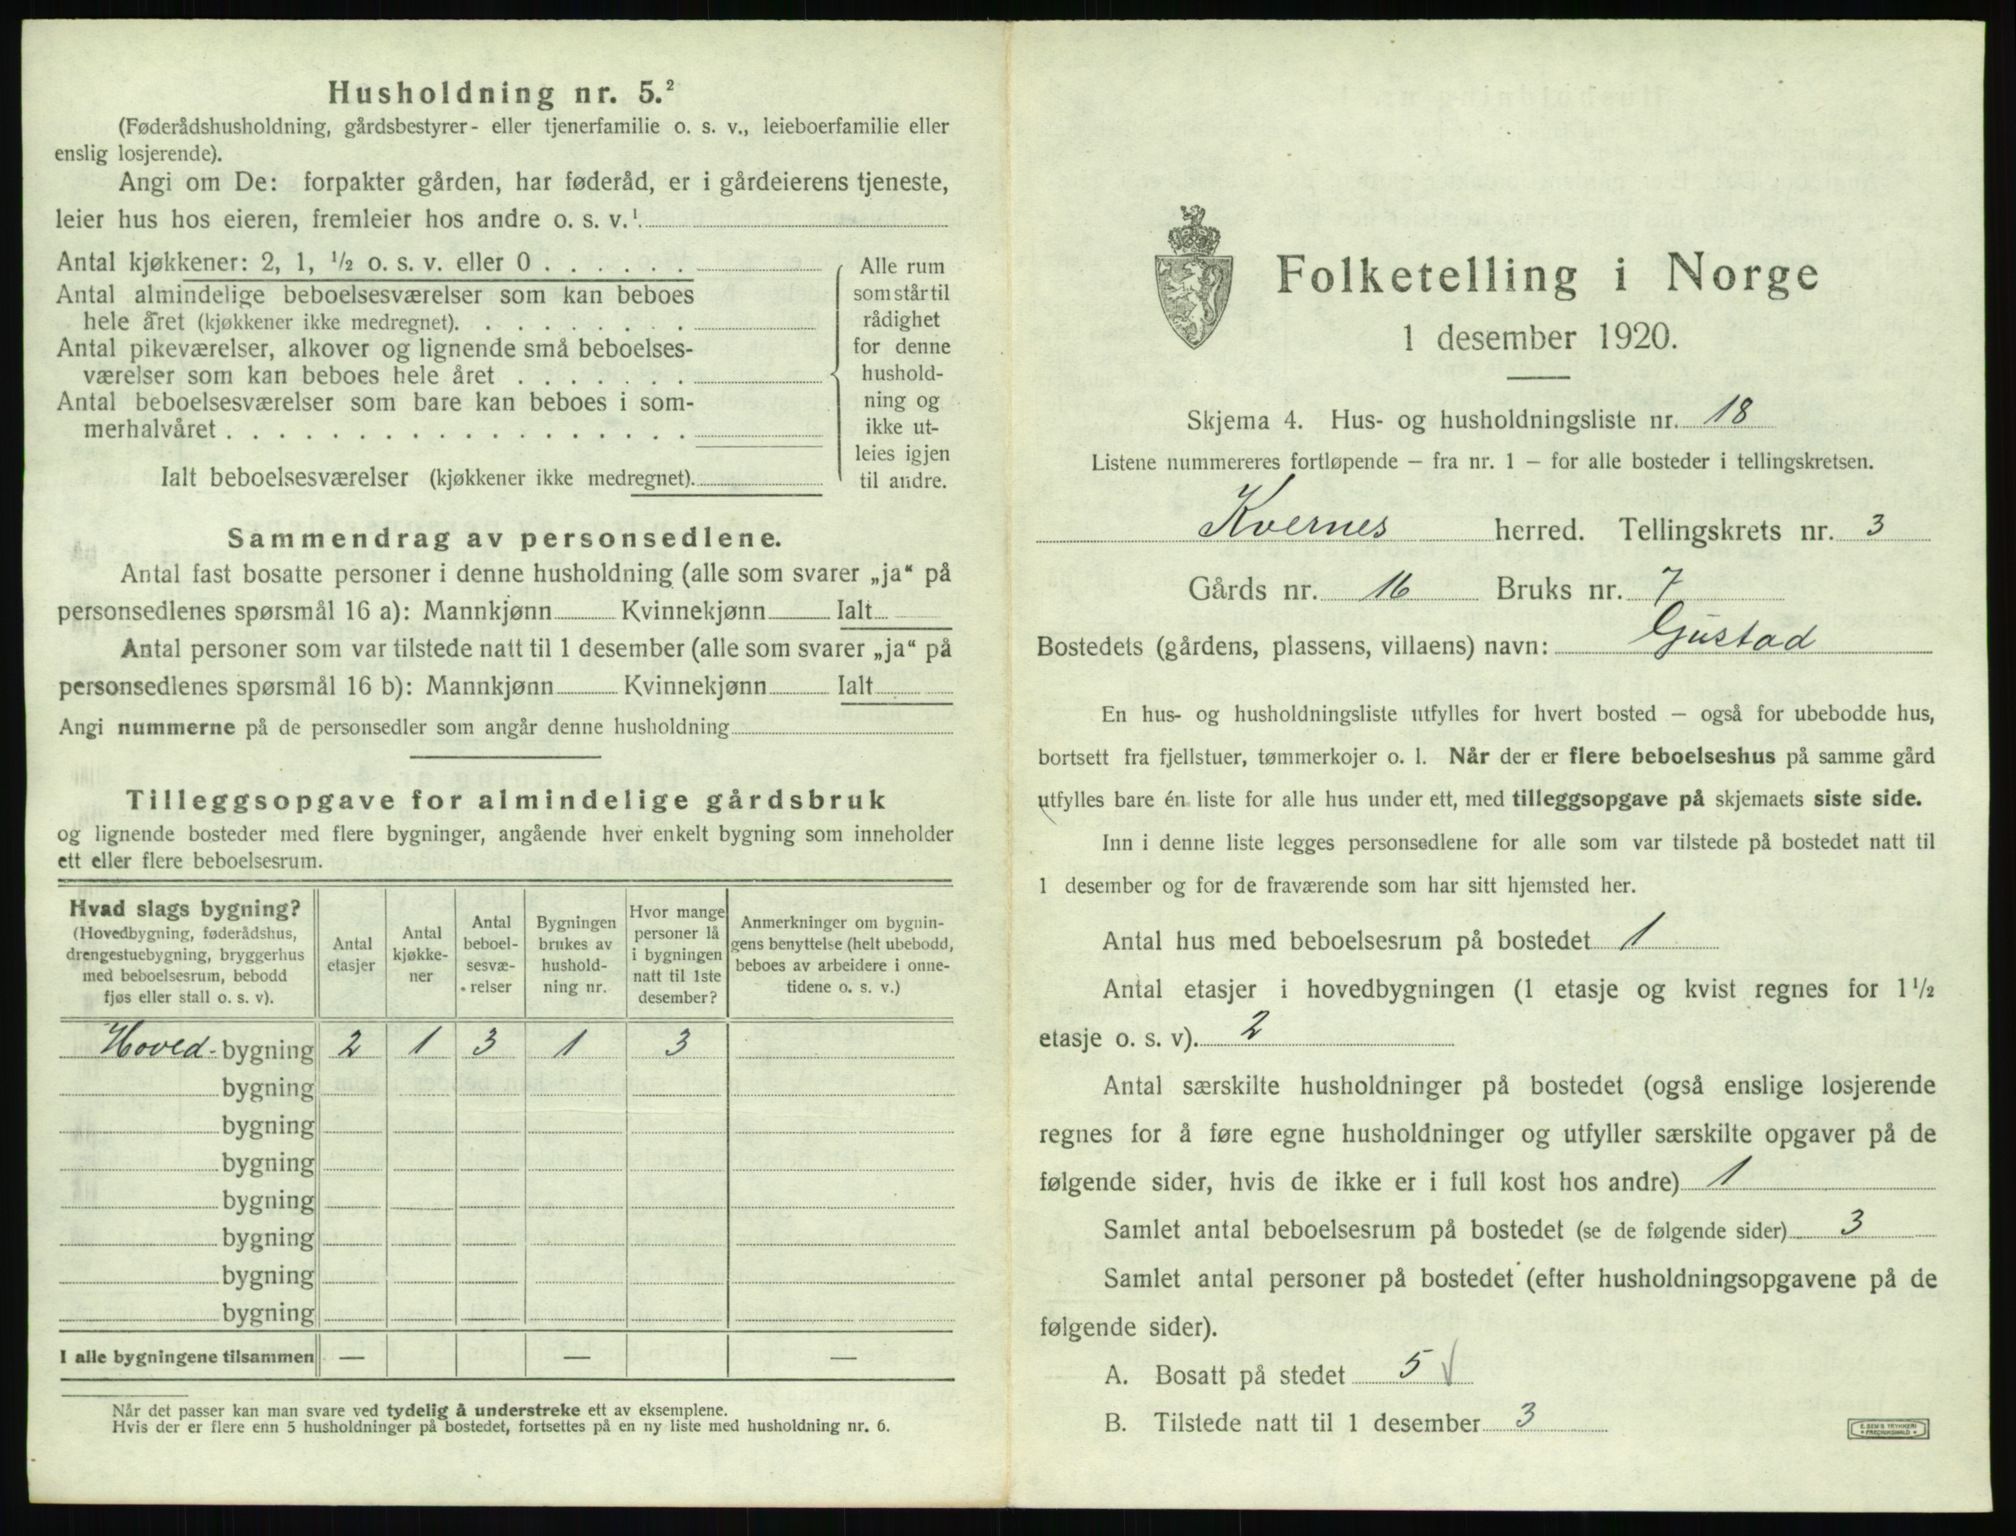 Husholdning nr. 5.²
(Føderådshusholdning, gårdsbestyrer- eller tjenerfamilie o. s. v., leieboerfamilie eller
enslig losjerende).
Angi om De: forpakter gården, har føderåd, er i gårdeierens tjeneste,
leier hus hos eieren, fremleier hos andre o. s. v.¹
Antal kjøkkener: 2, 1, ½ o. s. v. eller 0 . . . . . .
Antal almindelige beboelsesværelser som kan beboes
hele året (kjøkkener ikke medregnet). . . . . . . . .
Antal pikeværelser, alkover og lignende små beboelses-
værelser som kan beboes hele året . . . . . . .
Antal beboelsesværelser som bare kan beboes i som-
merhalvåret . . . . . . . . . . . . . . . . . .
Ialt beboelsesværelser (kjøkkener ikke medregnet).
Alle rum
som står til
rådighet
for denne
hushold-
ning og
ikke ut-
leies igjen
til andre.
Sammendrag av personsedlene.
Antal fast bosatte personer i denne husholdning (alle som svarer „ja“ på
personsedlenes spørsmål 16 a): Mannkjønn Kvinnekjønn Ialt
Antal personer som var tilstede natt til 1 desember (alle som svarer „ja“ på
personsedlenes spørsmål 16 b): Mannkjønn Kvinnekjønn Ialt
Angi nummerne på de personsedler som angår denne husholdning
Tilleggsopgave for almindelige gårdsbruk
og lignende bosteder med flere bygninger, angående hver enkelt bygning som inneholder
ett eller flere beboelsesrum.
Hvad slags bygning?
(Hovedbygning, føderådshus,
drengestuebygning, bryggerhus
med beboelsesrum, bebodd
fjøs eller stall o. s. v).
Antal
etasjer
Antal
kjøkke-
ner
Antal
beboel-
sesvæ-
relser
Bygningen
brukes av
hushold-
ning nr.
Hvor mange
personer lå
i bygningen
natt til 1ste
desember?
Anmerkninger om bygnin-
gens benyttelse (helt ubebodd,
beboes av arbeidere i onne-
tidene o. s. v.)
Hoved- bygning 2 1 3 1 3
bygning
bygning
bygning
bygning
bygning
bygning
bygning
I alle bygningene tilsammen — — —
Når det passer kan man svare ved tydelig å understreke ett av eksemplene.
Hvis der er flere enn 5 husholdninger på bostedet, fortsettes på en ny liste med husholdning nr. 6.
Folketelling i Norge
1 desember 1920.
Skjema 4. Hus- og husholdningsliste nr. 18
Listene nummereres fortløpende – fra nr. 1 – for alle bosteder i tellingskretsen.
Kvernes herred. Tellingskrets nr. 3
Gårds nr. 16 Bruks nr. 7
Bostedets (gårdens, plassens, villaens) navn: Gustad
En hus- og husholdningsliste utfylles for hvert bosted – også for ubebodde hus,
bortsett fra fjellstuer, tømmerkojer o. l. Når der er flere beboelseshus på samme gård
utfylles bare én liste for alle hus under ett, med tilleggsopgave på skjemaets siste side.
Inn i denne liste legges personsedlene for alle som var tilstede på bostedet natt til
1 desember og for de fraværende som har sitt hjemsted her.
Antal hus med beboelsesrum på bostedet 1
Antal etasjer i hovedbygningen (1 etasje og kvist regnes for 1½
etasje o. s. v). 2
Antal særskilte husholdninger på bostedet (også enslige losjerende
regnes for å føre egne husholdninger og utfyller særskilte opgaver på de
følgende sider, hvis de ikke er i full kost hos andre) 1
Samlet antal beboelsesrum på bostedet (se de følgende sider) 3
Samlet antal personer på bostedet (efter husholdningsopgavene på de
følgende sider).
A. Bosatt på stedet 5 √
B. Tilstede natt til 1 desember 3